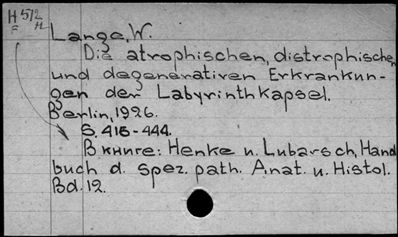 H 512
Lange, W.
Die atrophischen, distrophischen
und degenerativen Erkrankun-
gen der Labyrinthkapsel.
Berlin, 1926.
S. 416-444.
В книге: Henke u. Lubarsch, Hand
buch d. spez. path. Anat. u. Histol.
Bd. 12.